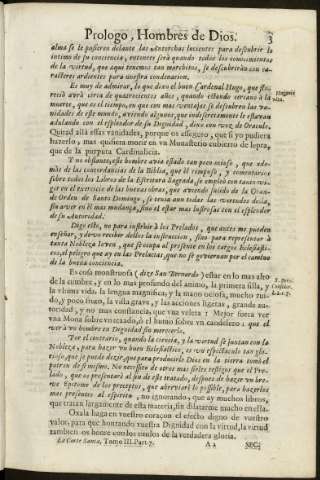 Prologo, Hombres de Dios. 3
alma se le pusieren delante las Antorchas lucientes para descubrir lo
intimo de su conciencia, entonces serà quando todos los conocimientos
de la virtud, que aqui tenemos tan marchitos, se descubriràn con ca-
racteres ardientes para nuestra condenacion.
Es muy de admirar, lo que dixo el buen Cardenal Hugo, que flo-
reciò avrà cerca de quatrocientos años, quando estando cercano à la
muerte, que es el tiempo, en que con mas ventajas se descubren las va-
nidades de este mundo, aviendo algunos, que indiscretamente le estavan
adulando con el esplendor de su Dignidad, dixo con voz de Oraculo.
Quitad allà essas vanidades, porque os asseguro, que si yo pudiera
hazerlo, mas quisiera morir en vn Monasterio cubierto de lepra,
que de la purpura Cardinalicia.
Y no obstante, este hombre avia estado tan poco ocioso, que ade-
màs de las concordancias de la Biblia, que èl compuso, y comentarios
sobre todos los Libros de la Escritura Sagrada, se empleò con tanto vi-
gor en el exercicio de las buenas obras, que aviendo salido de la Gran-
de Orden de Santo Domingo, se tenia aun todas las virtudes della,
sin aver en èl mas mudança, sino el estar mas lustrosas con el esplendor
de su Autoridad.
Digo esto, no para instruir à los Prelados, que antes me pueden
enseñar, y devo recibir dellos la instruccion, sino para representar à
tanta Nobleza joven, que se ocupa al presente en los cargos Eclesiasti-
cos, el peligro que ay en las Prelacias, que no se goviernan por el camino
de la buena conciencia.
Es cosa monstruosa (dize San Bernardo) estar en lo mas alto
de la cumbre, y en lo mas profundo del animo, la primera silla, y
la vltima vida. la lengua magnifica, y la mano ociosa, mucho rui-
do, y poco fruto, la vista grave, y las acciones ligeras, grande au-
toridad, y no mas constancia, que vna veleta: Mejor fuera ver
vna Mona sobre vn texado, ò el humo sobre vn candelero; que el
ver à vn hombre en Dignidad sin merecerlo.
Por el contrario, quando la ciencia, y la virtud se juntan con la
Nobleza, para hazer vn buen Eclesiastico, es vn espectaculo tan glo-
rioso, que se puede dezir, que para producirle Dios en la tierra tomò el
patron de sì mismo. No necessito de otros mas fieles testigos que el Pro-
lado, que os presentarè al fin de este tratado, despues de hazer vn bre-
ve Epitome de los preceptos, que acortarè lo possible, para hazerlos
mas presentes al espiritu, no ignorando, que ay muchos libros,
que tratan largamente de esta materia, sin dilatarme mucho en essa.
Oxalà haga en vuestro coraçon el efecto digno de vuestro
valor, para que honrando vuestra Dignidad con la virtud, la virtud
tambien os honre con los rayos de la verdadera gloria.
La Corte Santa, Tomo III. Part. 7. A 2 SEC-